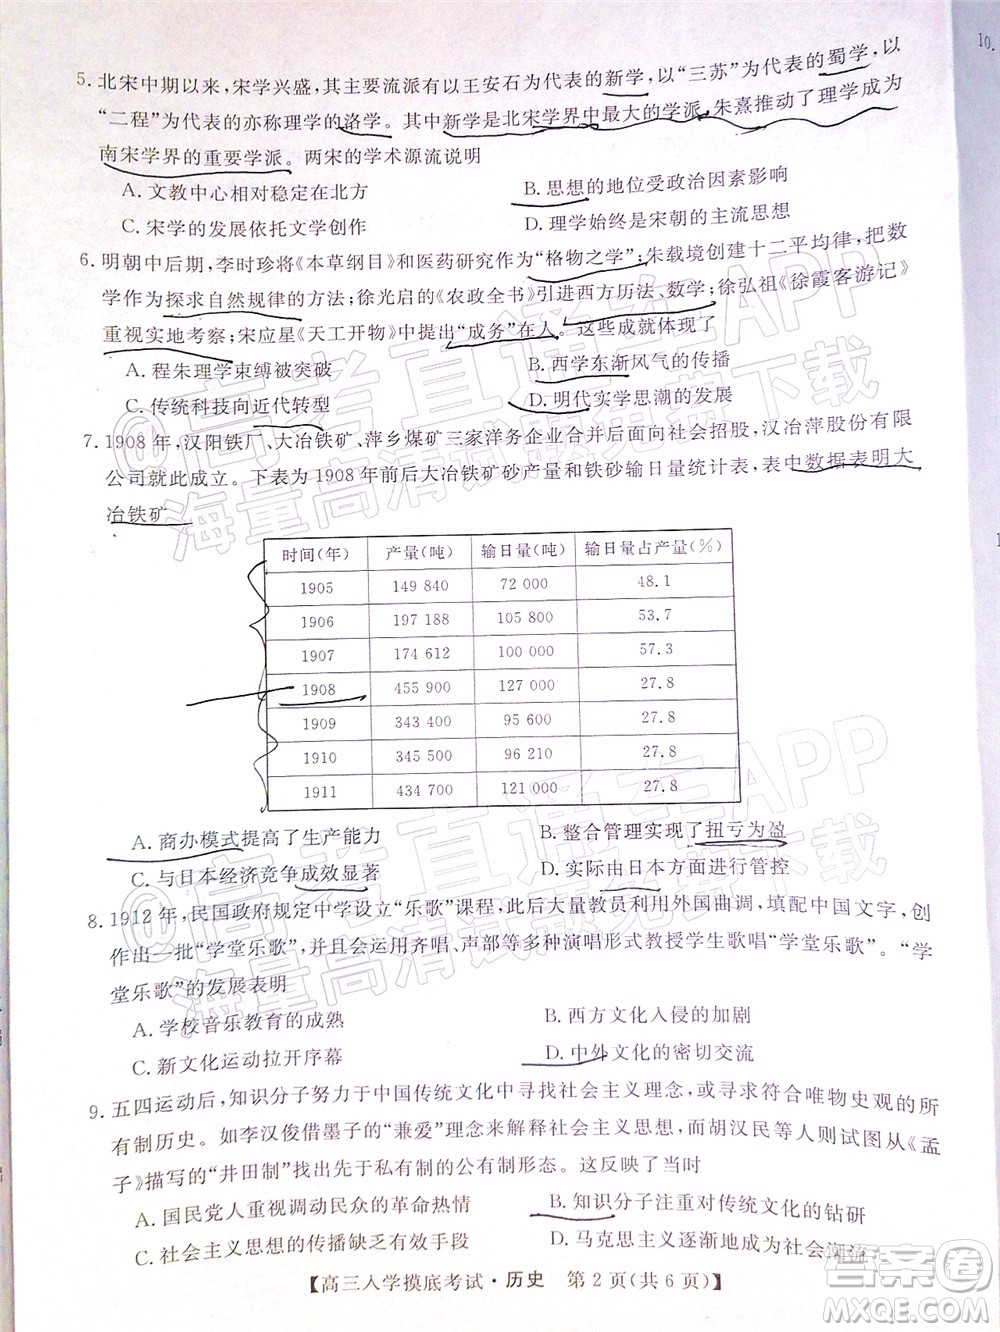 10.
5. 北宋中期以来，宋学兴盛，其主要流派有以王安石为代表的新学，以“三苏”为代表的蜀学，以
“二程”为代表的亦称理学的洛学。其中新学是北宋学界中最大的学派，朱熹推动了理学成为
南宋学界的重要学派。两宋的学术源流说明
A. 文教中心相对稳定在北方 B. 思想的地位受政治因素影响
C. 宋学的发展依托文学创作 D. 理学始终是宋朝的主流思想
6. 明朝中后期，李时珍将《本草纲目》和医药研究作为“格物之学”；朱载境创建十二平均律，把数
学作为探求自然规律的方法；徐光启的《农政全书》引进西方历法、数学；徐弘祖《徐霞客游记》
重视实地考察；宋应星《天工开物》中提出“成务”在人。这些成就体现了
A. 程朱理学束缚被突破 B. 西学东渐风气的传播
C. 传统科技向近代转型 D. 明代实学思潮的发展
7. 1908 年，汉阳铁厂、大冶铁矿、萍乡煤矿三家洋务企业合并后面向社会招股，汉冶萍股份有限
公司就此成立。下表为 1908 年前后大冶铁矿砂产量和铁砂输日量统计表，表中数据表明大
冶铁矿
时间(年) 产量(吨) 输日量(吨) 输日量占产量(%)
1905 149 840 72 000 48.1
1906 197 188 105 800 53.7
1907 174 612 100 000 57.3
1908 455 900 127 000 27.8
1909 343 400 95 600 27.8
1910 345 500 96 210 27.8
1911 434 700 121 000 27.8
A. 商办模式提高了生产能力 B. 整合管理实现了扭亏为盈
C. 与日本经济竞争成效显著 D. 实际由日本方面进行管控
8. 1912 年，民国政府规定中学设立“乐歌”课程，此后大量教员利用外国曲调，填配中国文字，创
作出一批“学堂乐歌”，并且会运用齐唱、声部等多种演唱形式教授学生歌唱“学堂乐歌”。“学
堂乐歌”的发展表明
A. 学校音乐教育的成熟 B. 西方文化入侵的加剧
C. 新文化运动拉开序幕 D. 中外文化的密切交流
9. 五四运动后，知识分子努力于中国传统文化中寻找社会主义理念，探求符合唯物史观的所
有制历史。如李汉俊借墨子的“兼爱”理念来解释社会主义思想，而胡汉民等人则试图从《孟
子》描写的“井田制”找出先于私有制的公有制形态。这反映了当时
A. 国民党人重视调动民众的革命热情 B. 知识分子注重对传统文化的钻研
C. 社会主义思想的传播缺乏有效手段 D. 马克思主义逐渐地成为社会潮流
【高三入学摸底考试·历史 第 2 页(共 6 页)】
@高考直通车APP
海量高清试题免费下载
@高考直通车APP
海量高清试题免费下载
答案圈
MXQE.COM